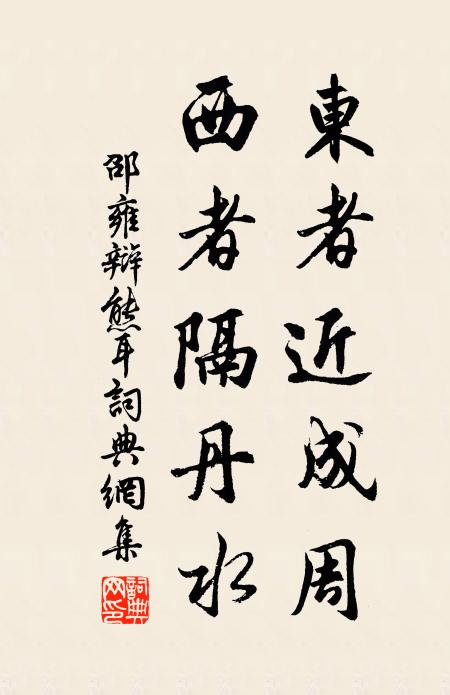 東者近成周
西者隔丹水
邵雍辯熊耳詞典網集
詞典
网印